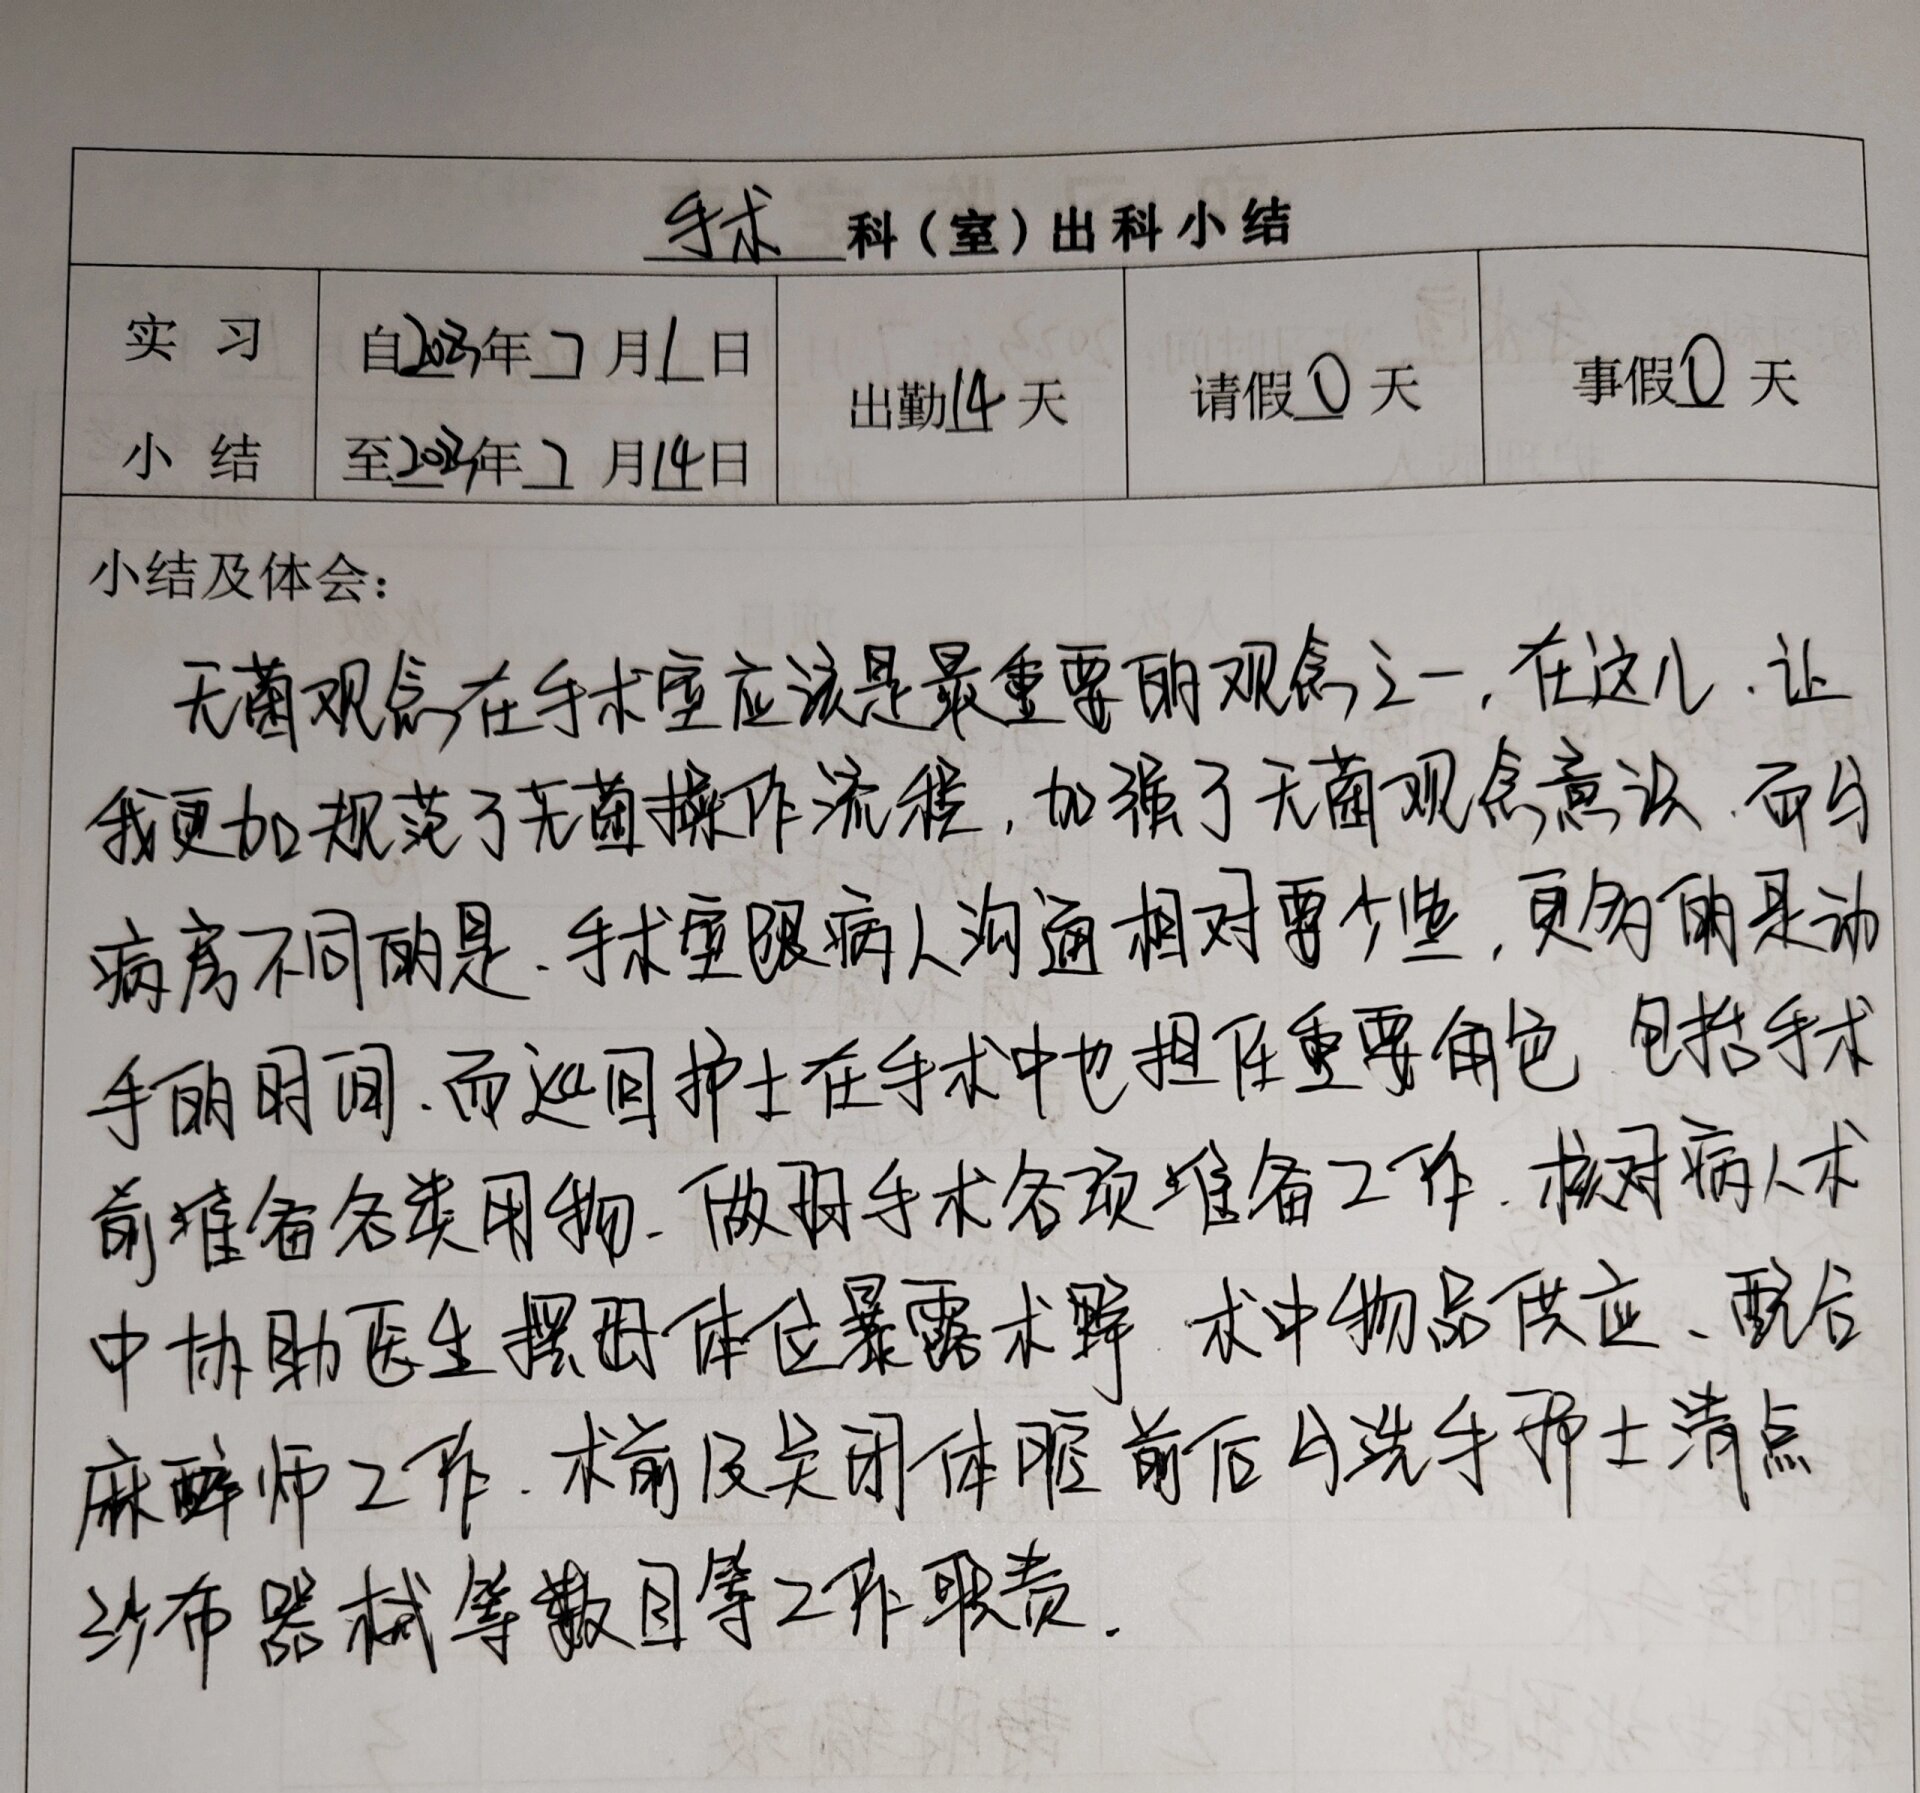 手术科（室）出科小结
实习
小结
自2023年7月1日
至2023年7月14日
出勤14天
请假0天
事假0天
小结及体会：
无菌观念在手术室应该是最重要的观念之一，在这儿，让
我更加规范了无菌操作流程，加强了无菌观念意识，而与
病房不同的是、手术室跟病人沟通相对要少些，更多的是动
手的时间、而巡回护士在手术中也担任重要角色 包括手术
前准备各类用物、做好手术各项准备工作、核对病人术
中协助医生摆好体位暴露术野 术中物品供应、配合
麻醉师工作、术前及关闭体腔前后与洗手护士清点
纱布器械等数目等工作职责.